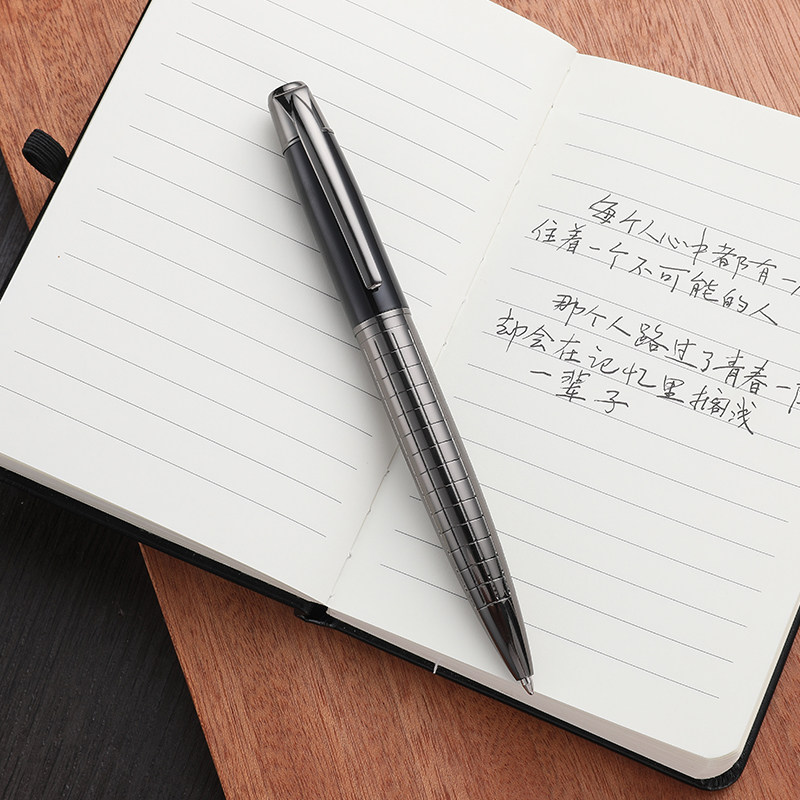 每个人心中都有一
住着一个不可能的人
那个人路过了青春一
却会在记忆里搁浅
一辈子